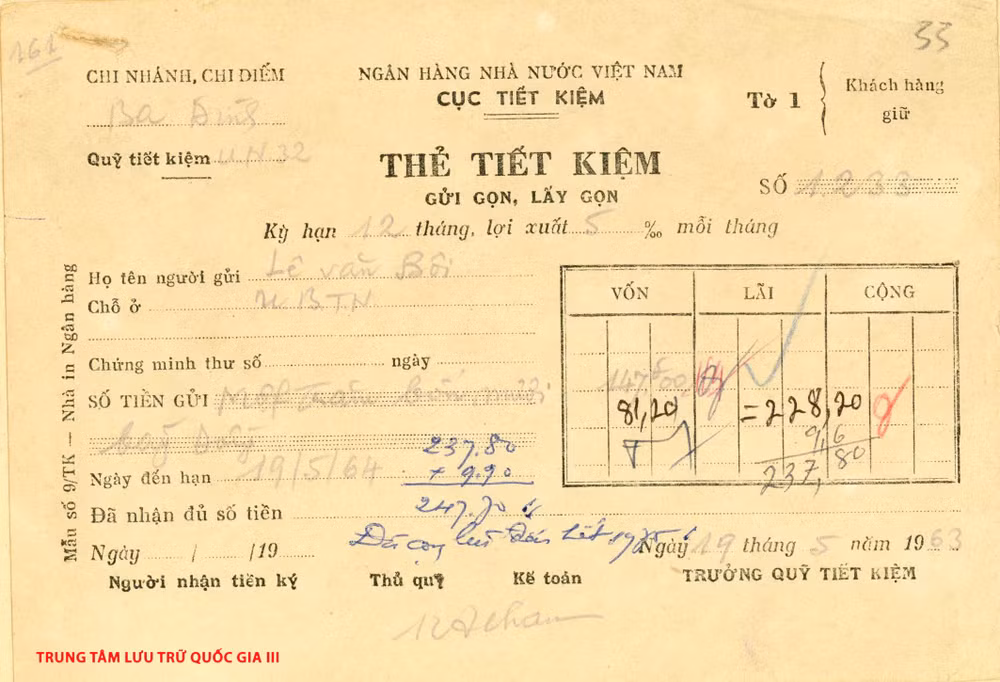 161
33
CHI NHÁNH, CHI ĐIẾM
Ba Đình
Quỹ tiết kiệm UN32
NGÂN HÀNG NHÀ NƯỚC VIỆT NAM
CỤC TIẾT KIỆM
Tờ 1
Khách hàng
giữ
THẺ TIẾT KIỆM
GỬI GỌN, LẤY GỌN
SỐ 1233
Kỳ hạn 12 tháng, lợi xuất 5 ‰ mỗi tháng
Họ tên người gửi Lê văn Bôi
Chỗ ở UBTN
Chứng minh thư số ngày
SỐ TIỀN GỬI Một trăm bốn mươi
bảy đồng
Ngày đến hạn 19/5/64
Đã nhận đủ số tiền
Ngày / /19
Người nhận tiền ký
Thủ quỹ
Kế toán
VỐN LÃI CỘNG
147.500
81,20 =228,20
9,6
237,80
237.80
+ 9.90
247.70
Đã cộng lãi đến hết 1975
Ngày 19 tháng 5 năm 1963
TRƯỞNG QUỸ TIẾT KIỆM
Mẫu số 9/TK — Nhà in Ngân hàng
TRUNG TÂM LƯU TRỮ QUỐC GIA III